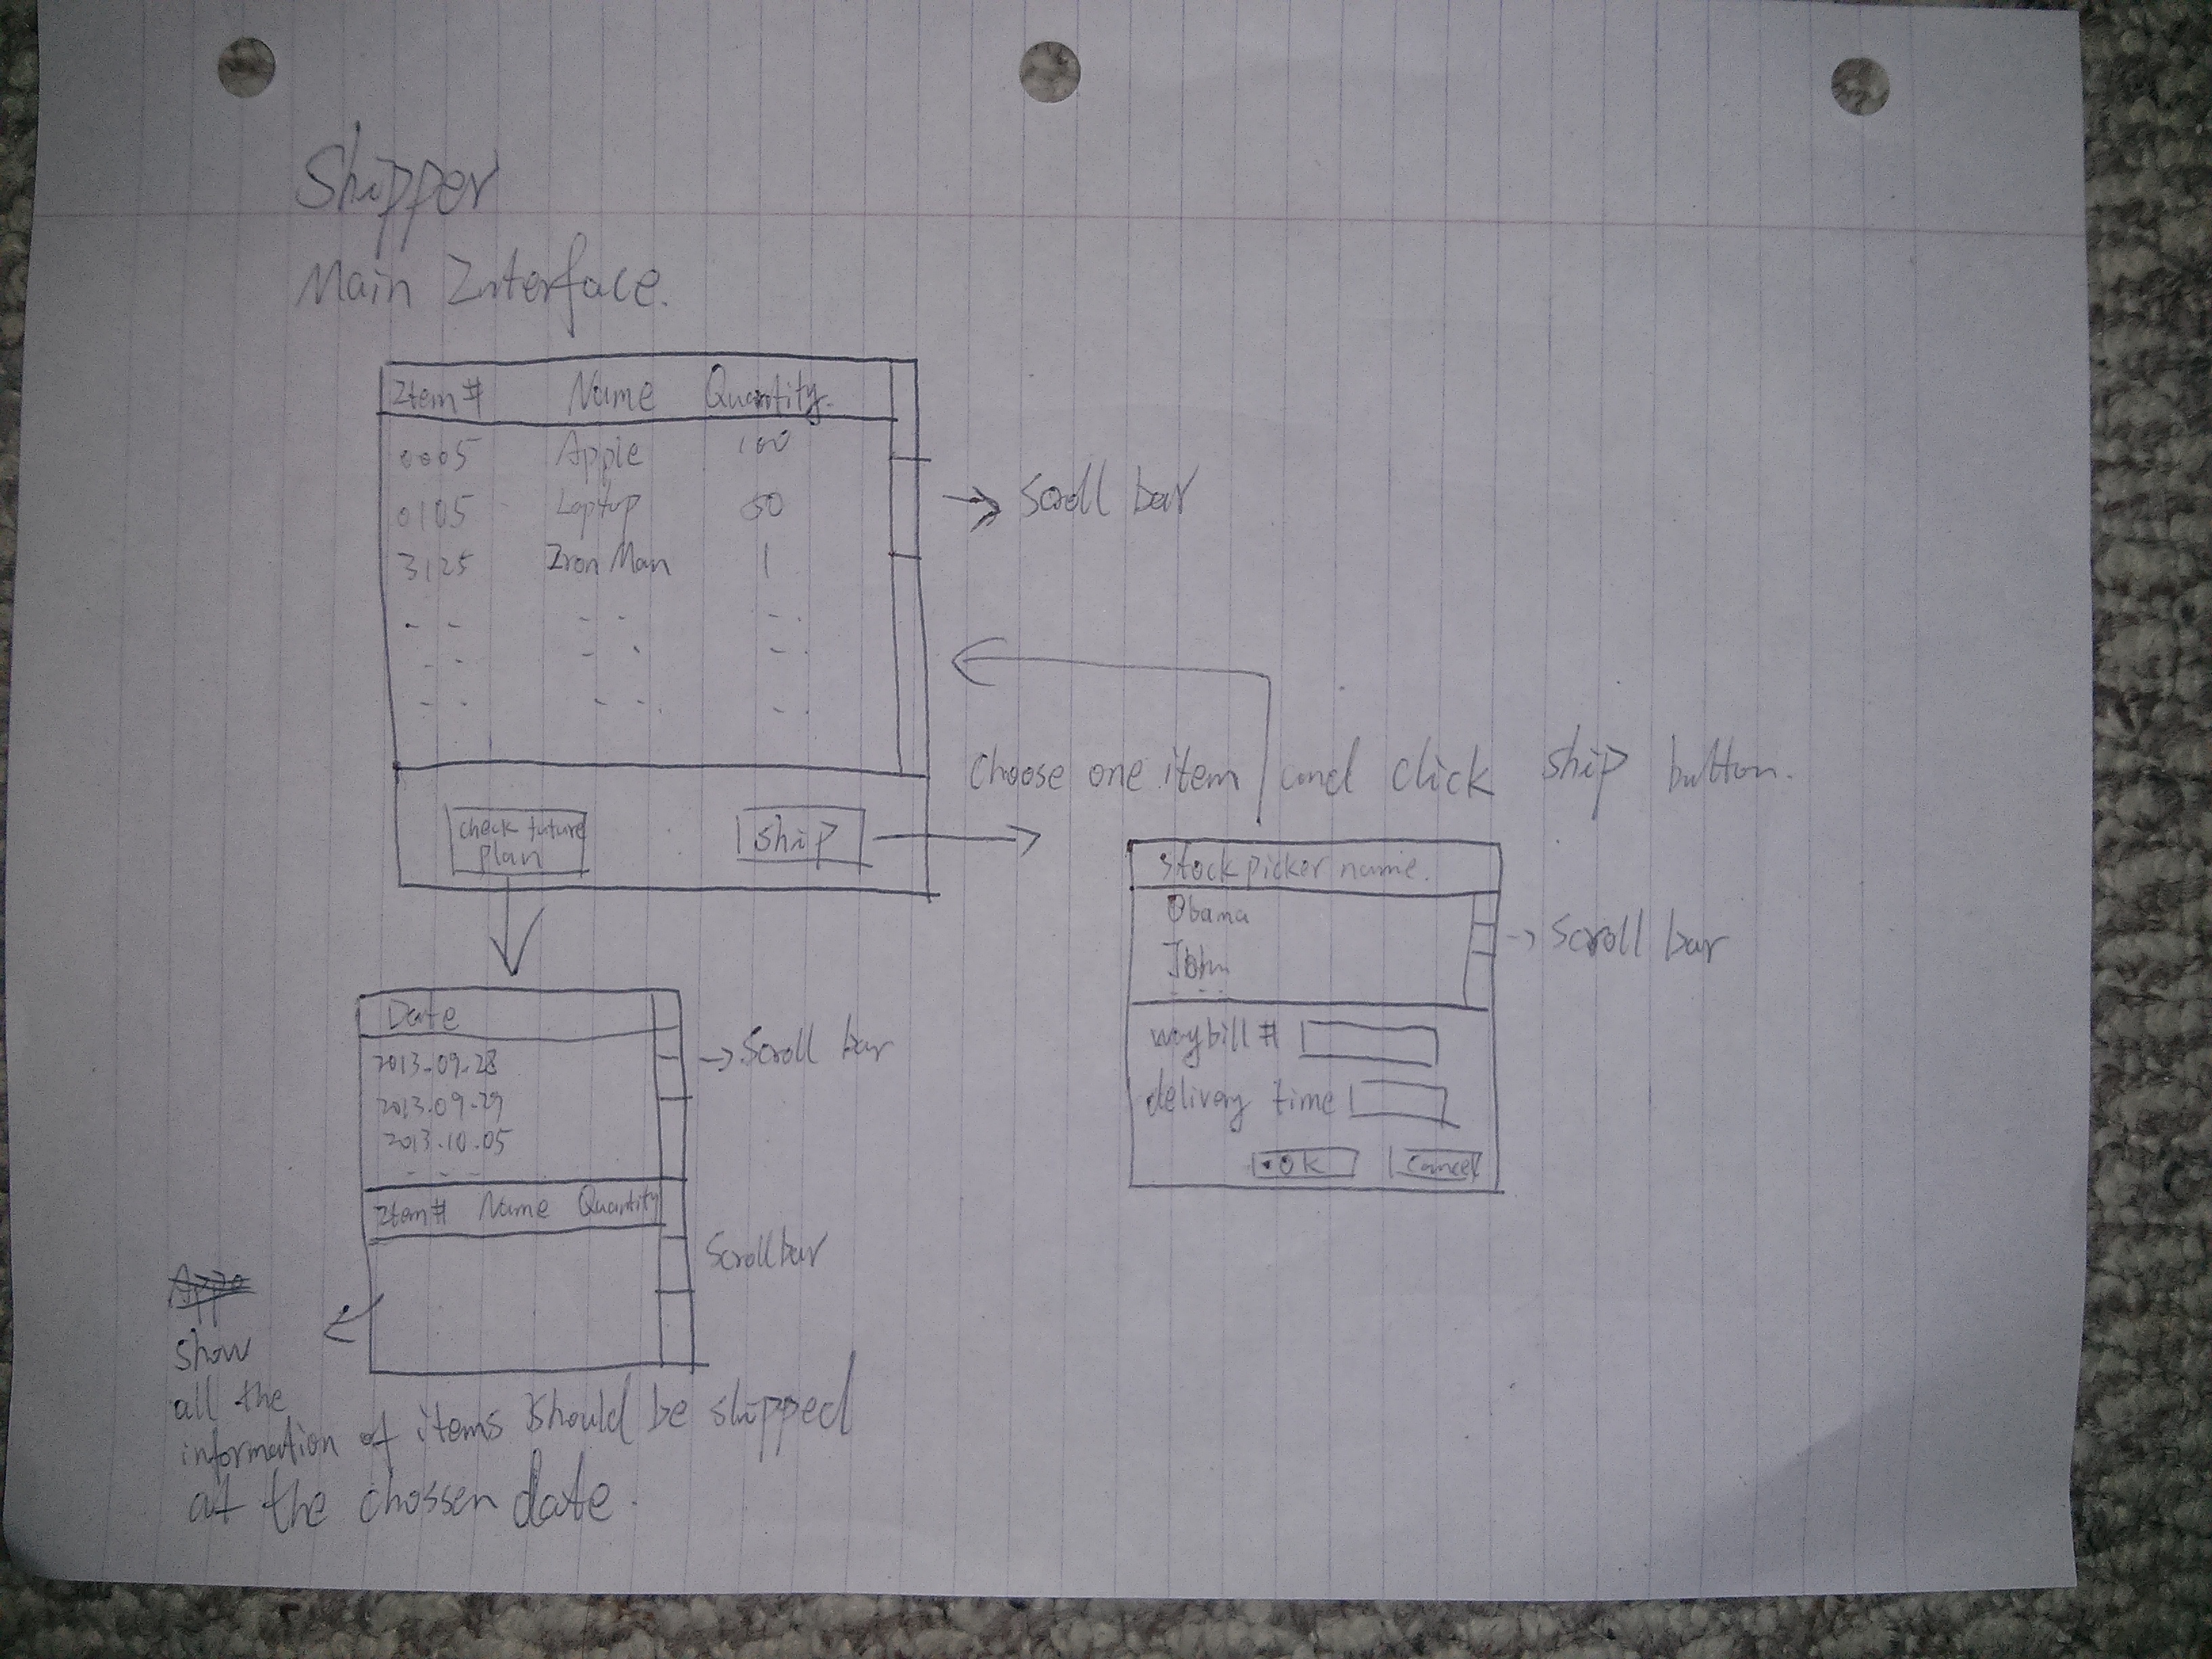 Shipper
Main Interface.
Item # Name Quantity.
0005 Apple 100
0105 Laptop 50
3125 Iron Man 1
→ Scroll bar
Choose one item and click ship button.
check future
plan
ship
Stock picker name.
Obama
John
→ Scroll bar
waybill #
delivery time
OK Cancel
Date
2013.09.28
2013.09.29
2013.10.05
→ Scroll bar
Item # Name Quantity
Scroll bar
show
all the
information of items should be shipped
at the chossen date.